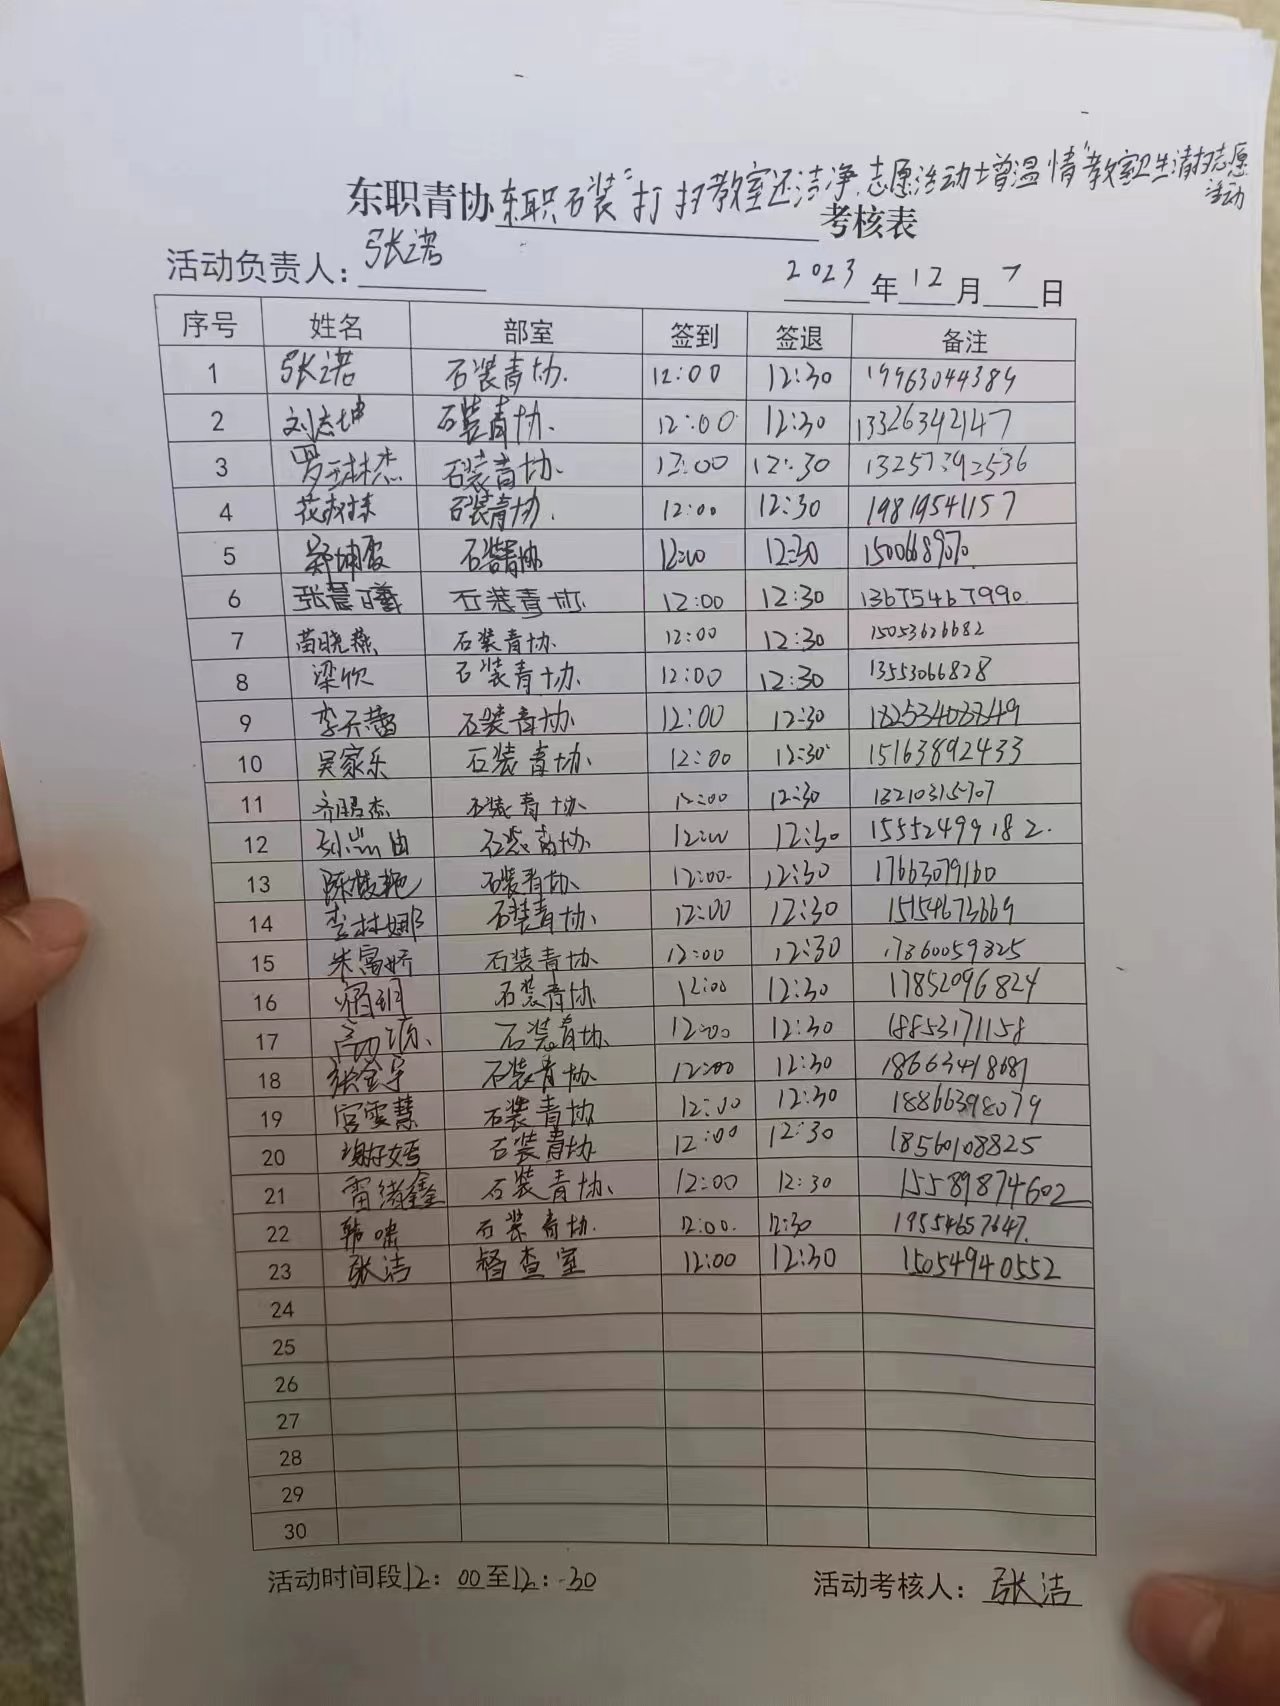 东职青协东职石装“打扫教室还洁净,志愿活动增温情”教室卫生清扫志愿活动
考核表
活动负责人：张诺 2023年12月7日
序号 姓名 部室 签到 签退 备注
1 张诺 石装青协. 12:00 12:30 19963044389
2 刘志坤 石装青协. 12:00 12:30 13326342147
3 罗玉林杰 石装青协. 12:00 12:30 13257392536
4 石装青协. 12:00 12:30 19819541157
5 石装青协 12:00 12:30
6 张晨曦 石装青协. 12:00 12:30 13675467990.
7 苗晓燕 石装青协. 12:00 12:30 15053626682
8 梁欣 石装青协. 12:00 12:30 13553066828
9 李天蕾 石装青协. 12:00 12:30
10 吴家乐 石装青协. 12:00 12:30 15163892433
11 齐鹏杰 石装青协. 12:00 12:30 13210315707
12 石装青协. 12:00 12:30 15552499182.
13 石装青协. 12:00. 12:30 17663079160
14 李林娜 石装青协. 12:00 12:30 15154673669
15 朱富娇 石装青协. 12:00 12:30 17860059825
16 石装青协. 12:00 12:30 17852096824
17 高源. 石装青协. 12:00 12:30 18853171158
18 张金宇 石装青协. 12:00 12:30 18663418687
19 宫雯慧 石装青协. 12:00 12:30 18866398079
20 石装青协. 12:00 12:30 18560108825
21 雷绪鑫 石装青协. 12:00 12:30 15589874602
22 韩啸 石装青协. 12:00. 12:30 19554657647.
23 张洁 督查室 12:00 12:30 15054940552
24
25
26
27
28
29
30
活动时间段12：00至12：30 活动考核人：张洁